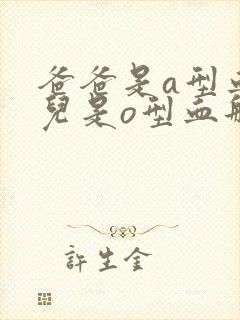 爸爸是a型血
兒是o型血
許生金